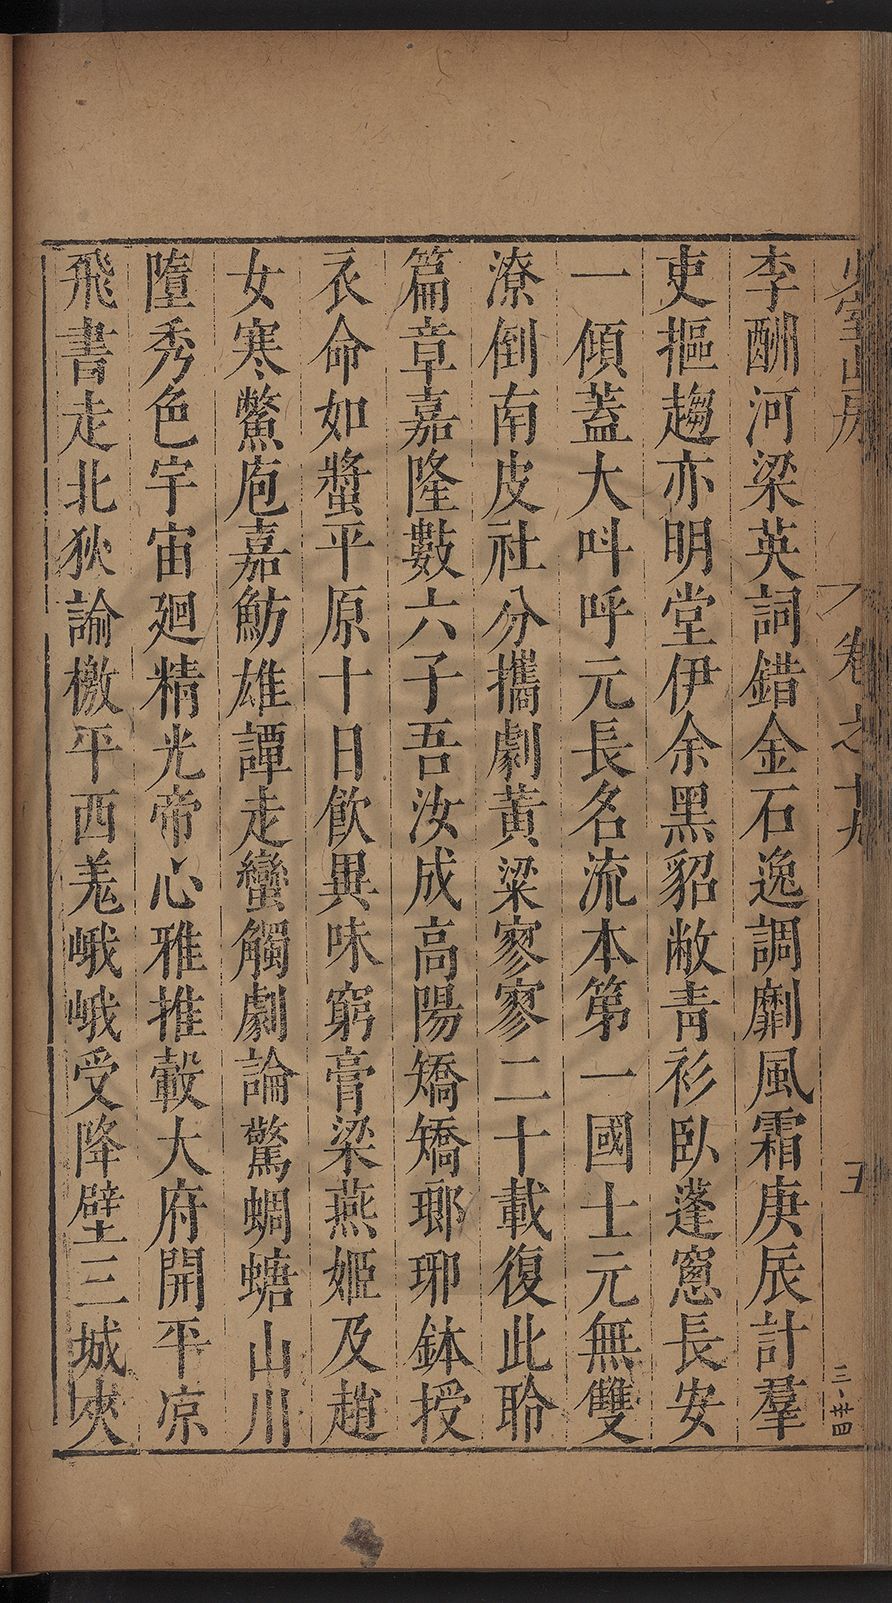 李酬河梁英詞錯金石逸調劘風霜庚辰計羣
吏摳趨亦明堂伊余黑貂敝青衫臥蓬窻長安
一傾蓋大呌呼元長名流本第一國士元無雙
潦倒南皮社分攜劇黃粱寥寥二十載復此聆
篇章嘉隆數六子吾汝成高陽矯矯瑯琊鉢授
衣命如螿平原十日飲異味窮膏粱燕姬及趙
女寒鱉庖嘉魴雄譚走蠻觸劇論驚蜩螗山川
隋秀色宇宙廻精光帝心雅推轂大府開平凉
飛書走北狄諭檄平西羗峨峨受降壁三城夾
卷之十九
五
三·卅四